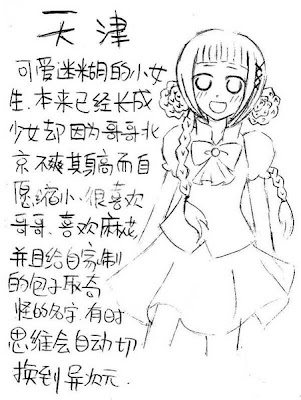 天津
可爱迷糊的小女
生.本来已经长成
少女却因为哥哥北
京不爽其身高而自
愿缩小.很喜欢
哥哥.喜欢麻花,
并且给自家制
的包子取奇
怪的名字.有时
思维会自动切
换到异次元.